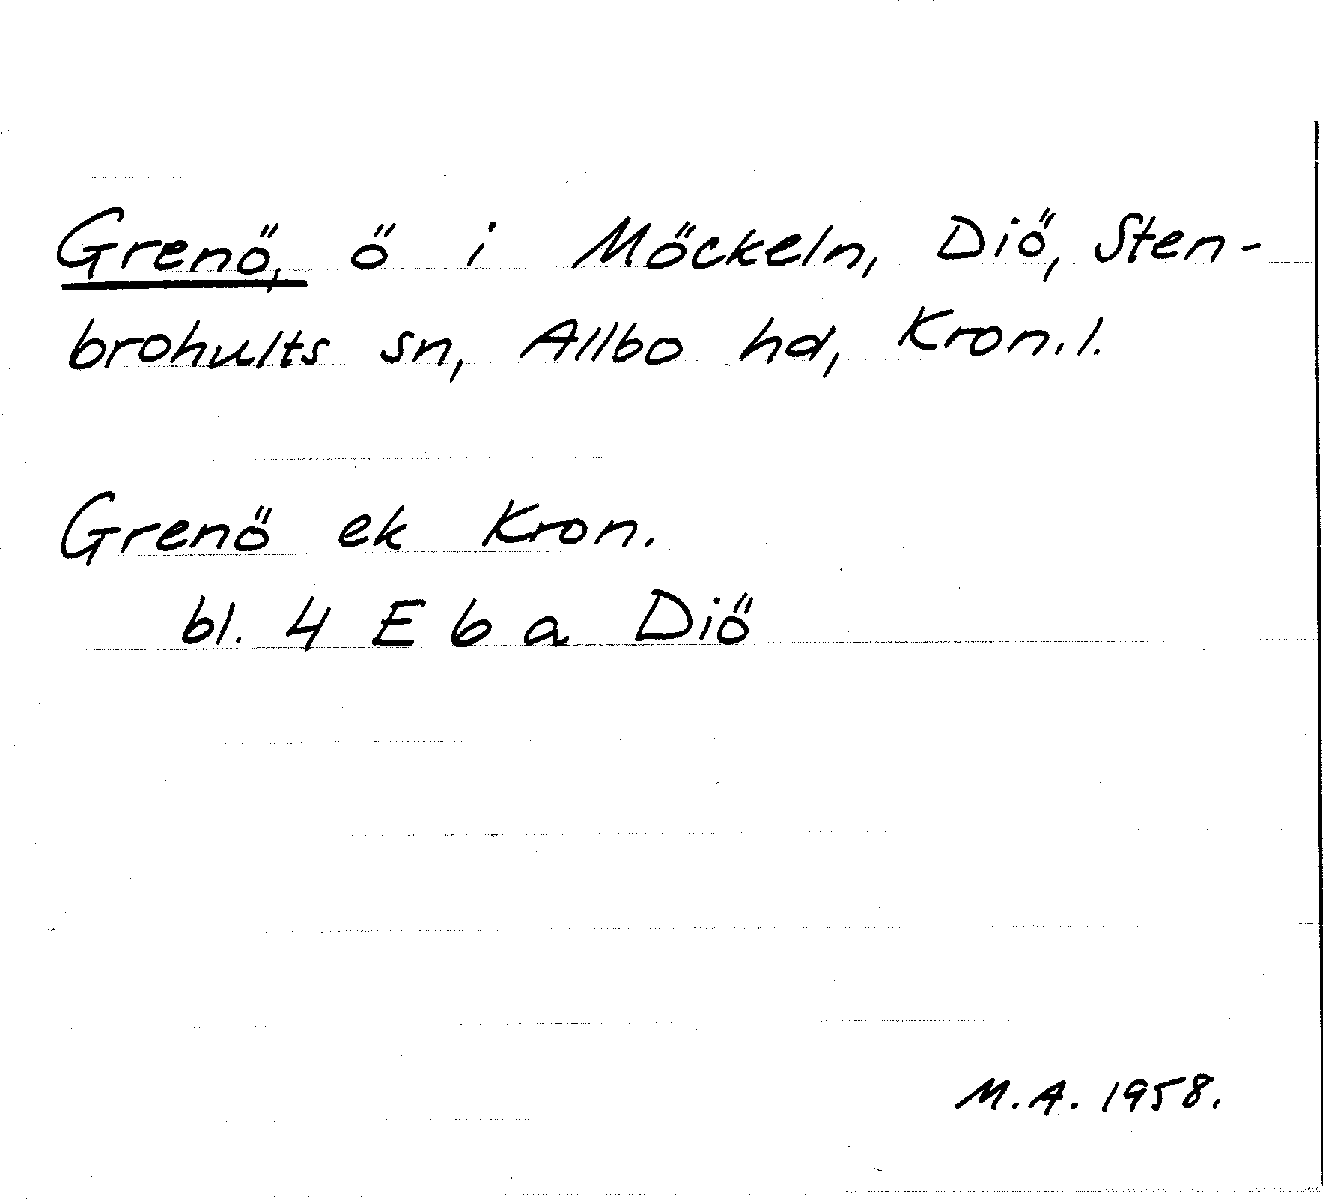 Grenö, ö i Möckeln, Diö, Sten-
brohults sn, Allbo hd, Kron.l.
Grenö ek Kron.
bl. 4 E 6 a Diö
M.A. 1958.